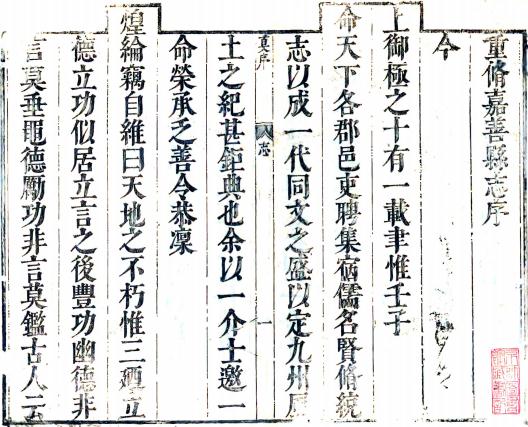 重脩嘉善縣志序
今
上御極之十有一載聿惟壬子
命天下各郡邑吏聘集宿儒名賢脩統
志以成一代同文之盛以定九州厥
莫序 八志 一
土之紀甚鉅典也余以一介士邀一
命榮承乏善令恭凜
煌綸竊自維曰天地之不朽惟三趣立
德立功似居立言之後豐功幽德非
言莫垂黽德勵功非言莫鑑古人云